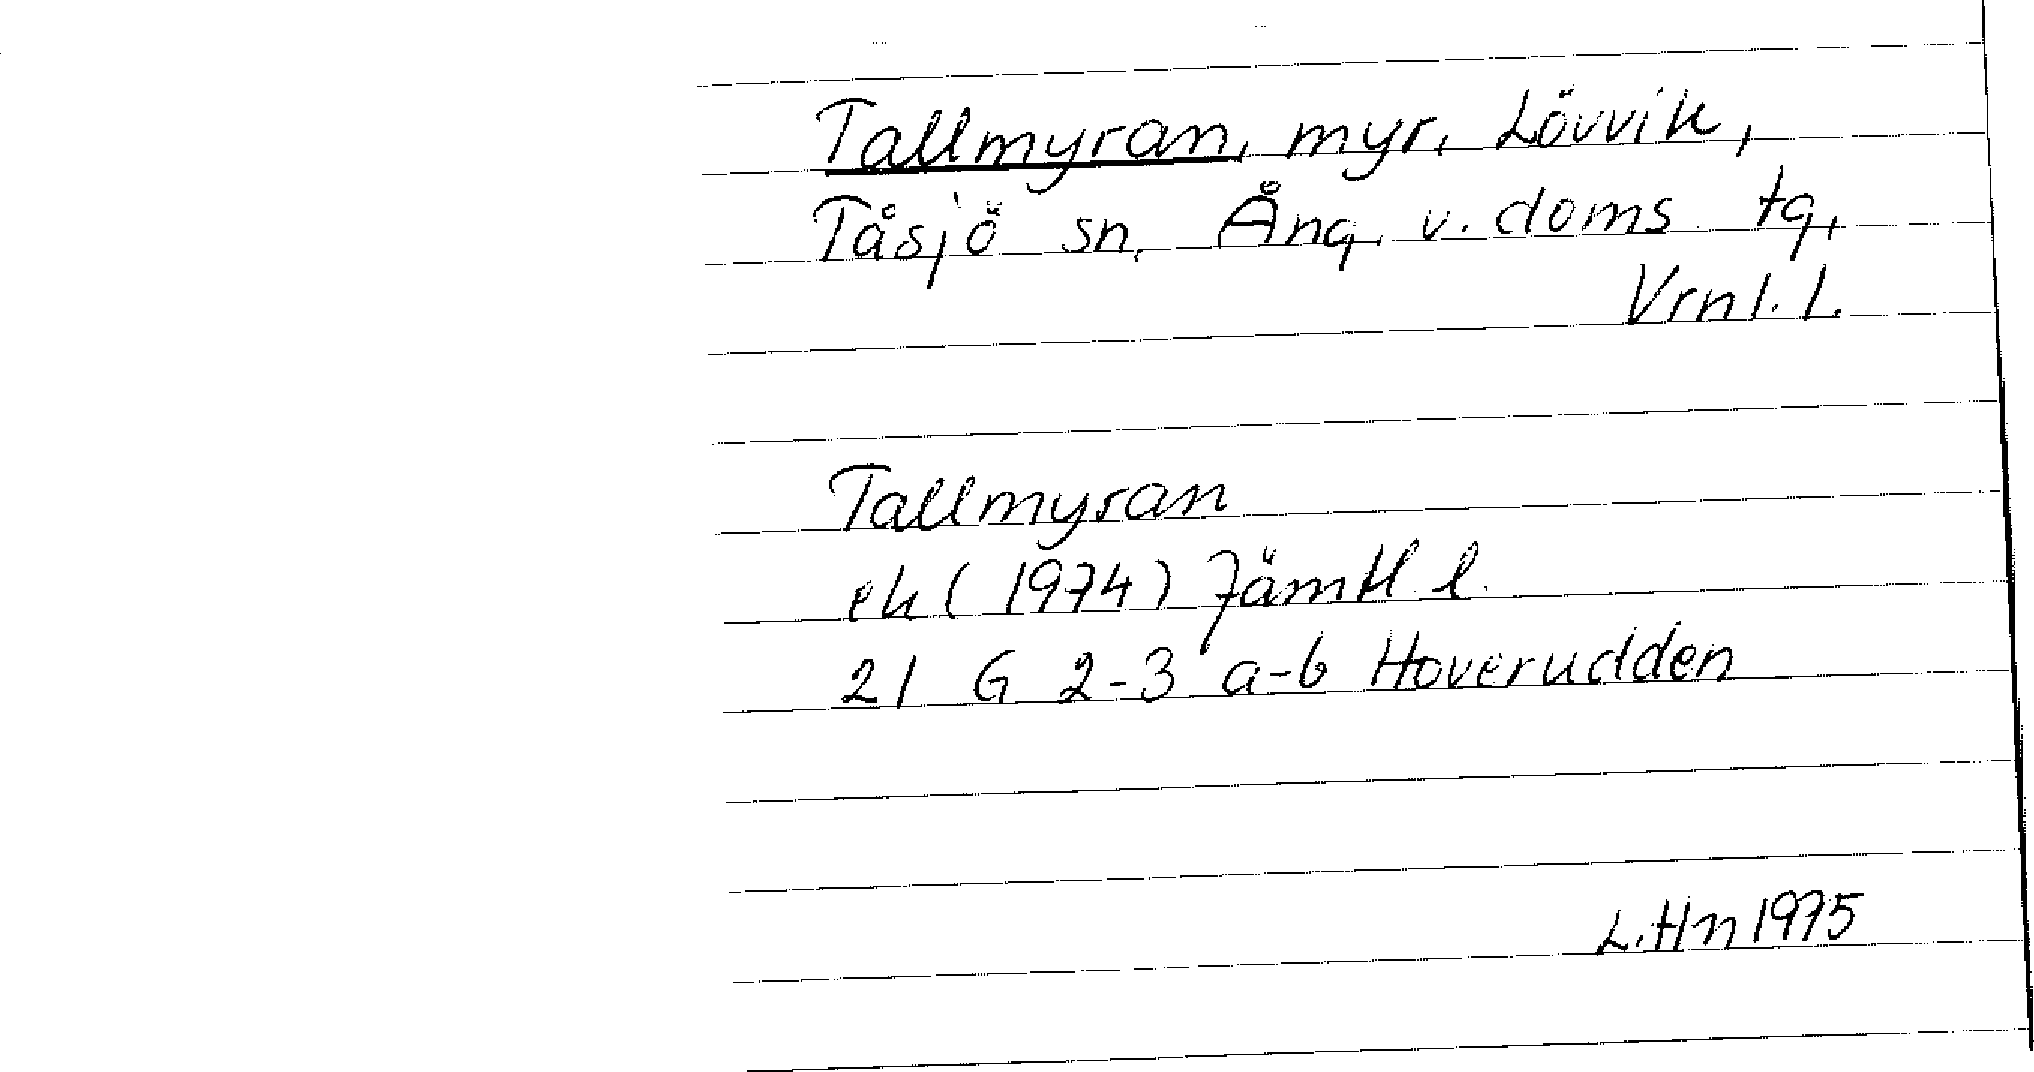 Tallmyran, myr, Lövvik,
Tåsjö sn, Ång. v. doms tg,
Vrnl. l.
Tallmyran
ek (1974) Jämtl l.
21 G 2-3 a-b Hoverudden
L. Hn 1975